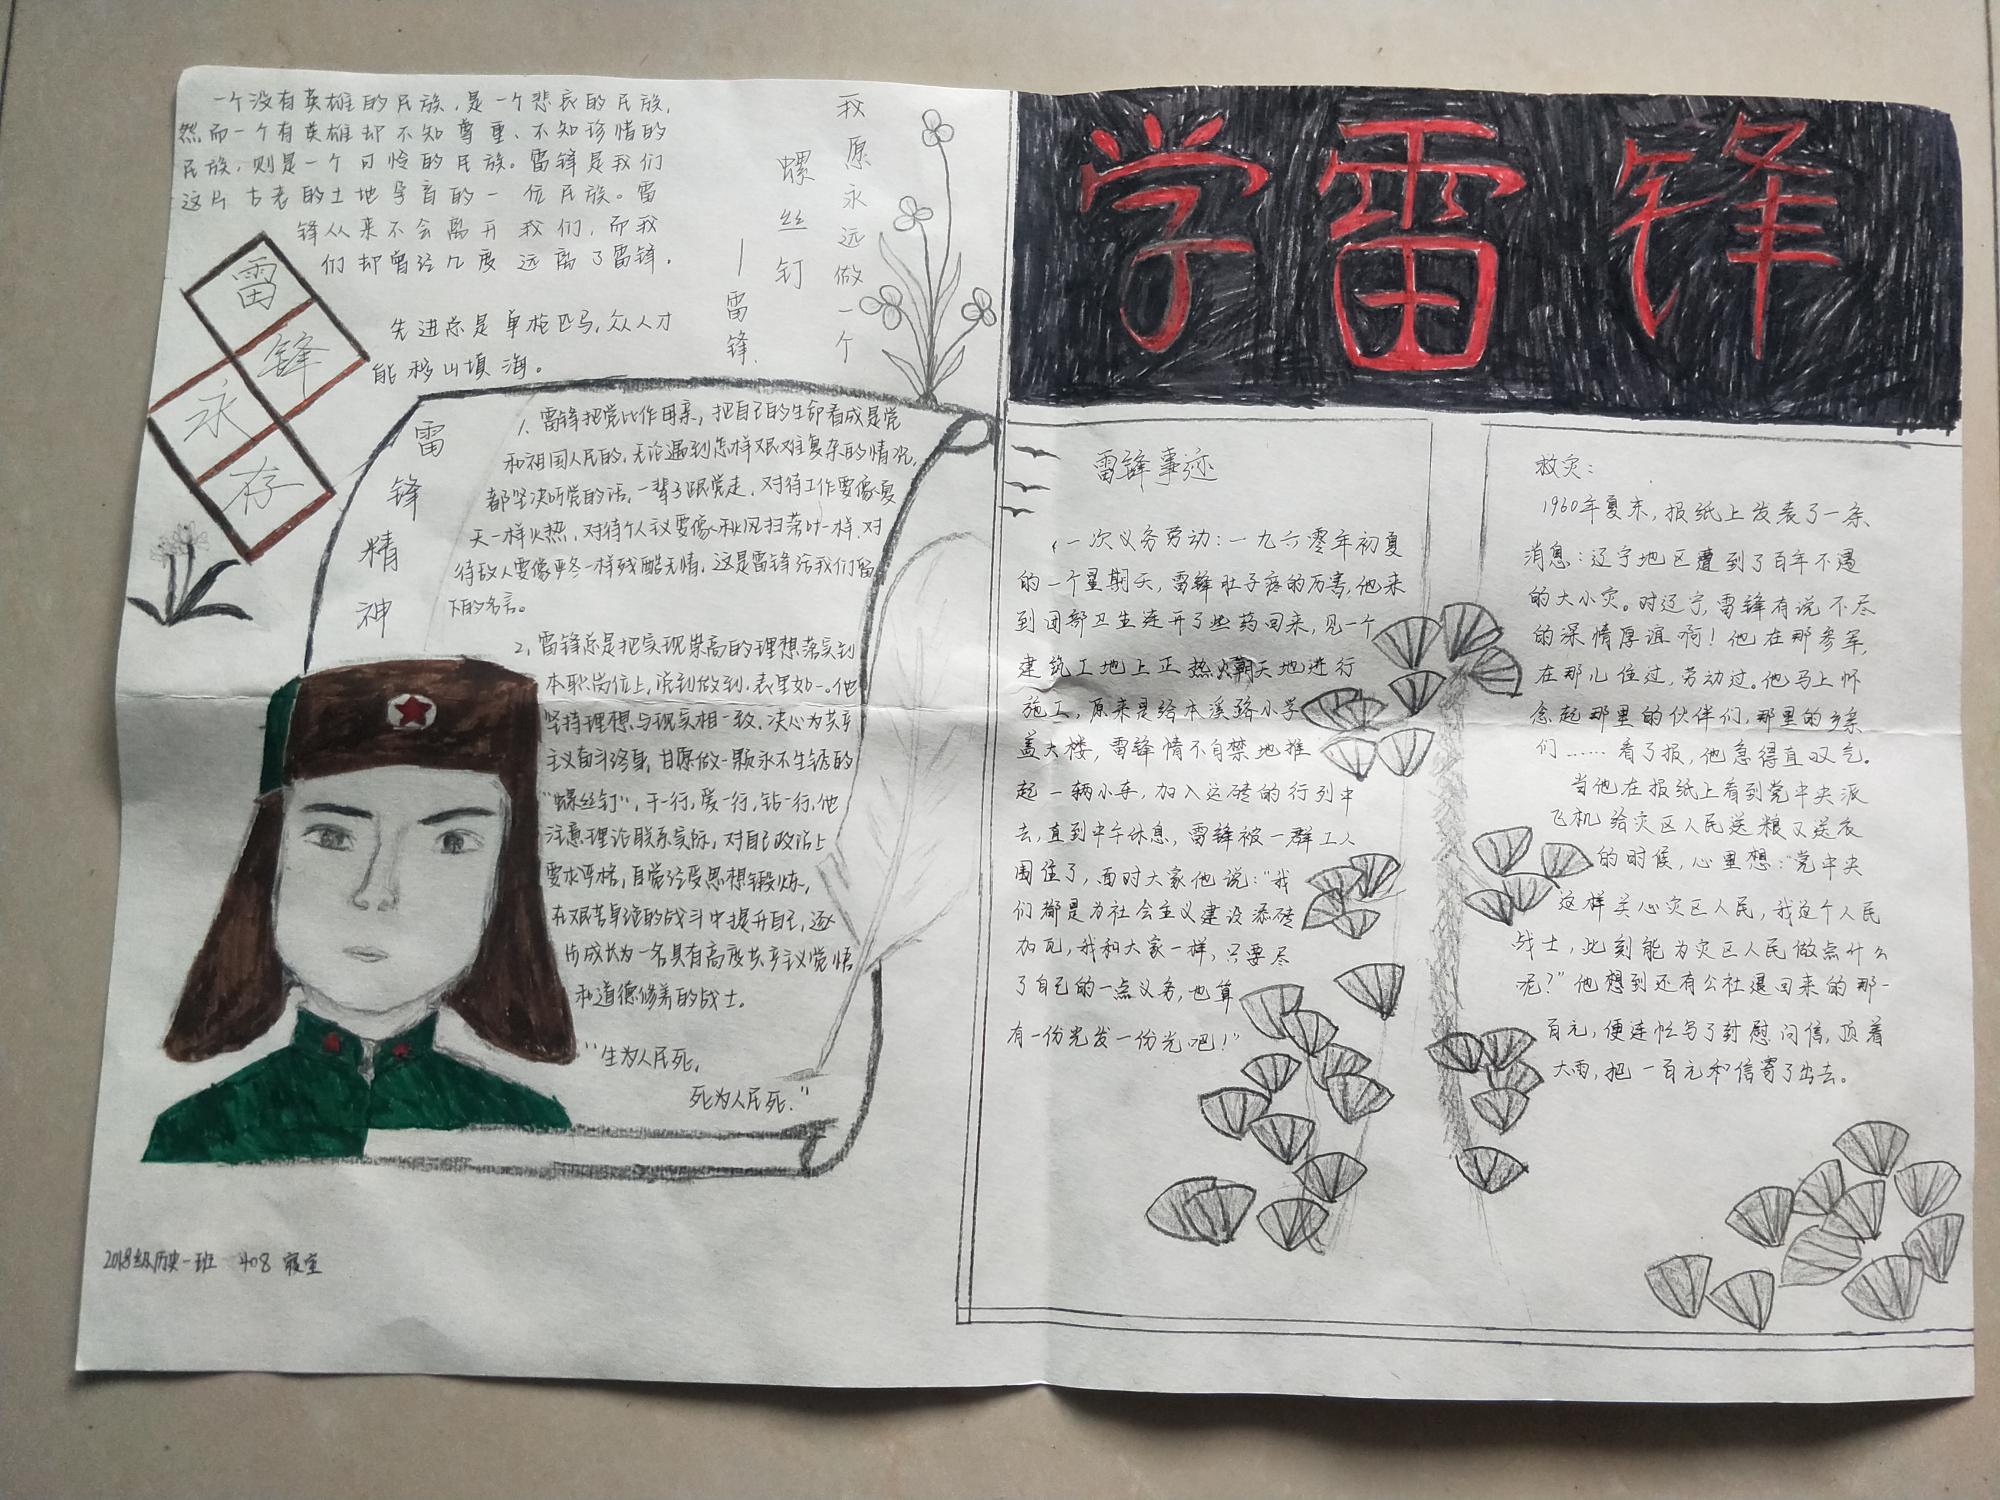 一个没有英雄的民族,是一个悲哀的民族,
然而一个有英雄却不知尊重、不知珍惜的
民族,则是一个可怜的民族。雷锋是我们
这片古老的土地孕育的一位民族。雷
锋从来不会离开我们,而我
们却曾经几度远离了雷锋.
先进总是单枪匹马,众人才
能移山填海。
我愿永远做一个
螺丝钉
—雷锋.
雷锋
永存
雷锋精神
1.雷锋把党比作母亲,把自己的生命看成是党
和祖国人民的,无论遇到怎样艰难复杂的情况,
都坚决听党的话,一辈子跟党走,对待工作要像夏
天一样火热,对待个人主义要像秋风扫落叶一样,对
待敌人要像严冬一样残酷无情,这是雷锋给我们留
下的名言。
2,雷锋总是把实现崇高的理想落实到
本职岗位上,说到做到,表里如一。他
坚持理想与现实相一致,决心为共产
主义奋斗终身,甘愿做一颗永不生锈的
"螺丝钉",干一行,爱一行,钻一行,他
注意理论联系实际,对自己政治上
要求严格,自觉经受思想锻炼,
在艰苦卓绝的战斗中提升自己,逐
步成长为一名具有高度共产主义觉悟
和道德修养的战士。
"生为人民死,
死为人民死."
2018级历史一班 408 寝室
学雷锋
雷锋事迹
一次义务劳动:一九六零年初夏
的一个星期天,雷锋肚子疼的厉害,他来
到团部卫生连开了些药回来,见一个
建筑工地上正热火朝天地进行
施工,原来是给本溪路小学
盖大楼,雷锋情不自禁地推
起一辆小车,加入运砖的行列中
去,直到中午休息,雷锋被一群工人
围住了,面对大家他说:"我
们都是为社会主义建设添砖
加瓦,我和大家一样,只要尽
了自己的一点义务,也算
有一份光发一份光吧!"
救灾:
1960年夏末,报纸上发表了一条
消息:辽宁地区遭到了百年不遇
的大小灾。对辽宁,雷锋有说不尽
的深情厚谊啊!他在那参军,
在那儿住过,劳动过。他马上怀
念起那里的伙伴们,那里的乡亲
们……看了报,他急得直叹气。
当他在报纸上看到党中央派
飞机给灾区人民送粮又送衣
的时候,心里想:"党中央
这样关心灾区人民,我这个人民
战士,此刻能为灾区人民做点什么
呢?"他想到还有公社退回来的那一
百元,便连忙写了封慰问信,顶着
大雨,把一百元和信寄了出去。